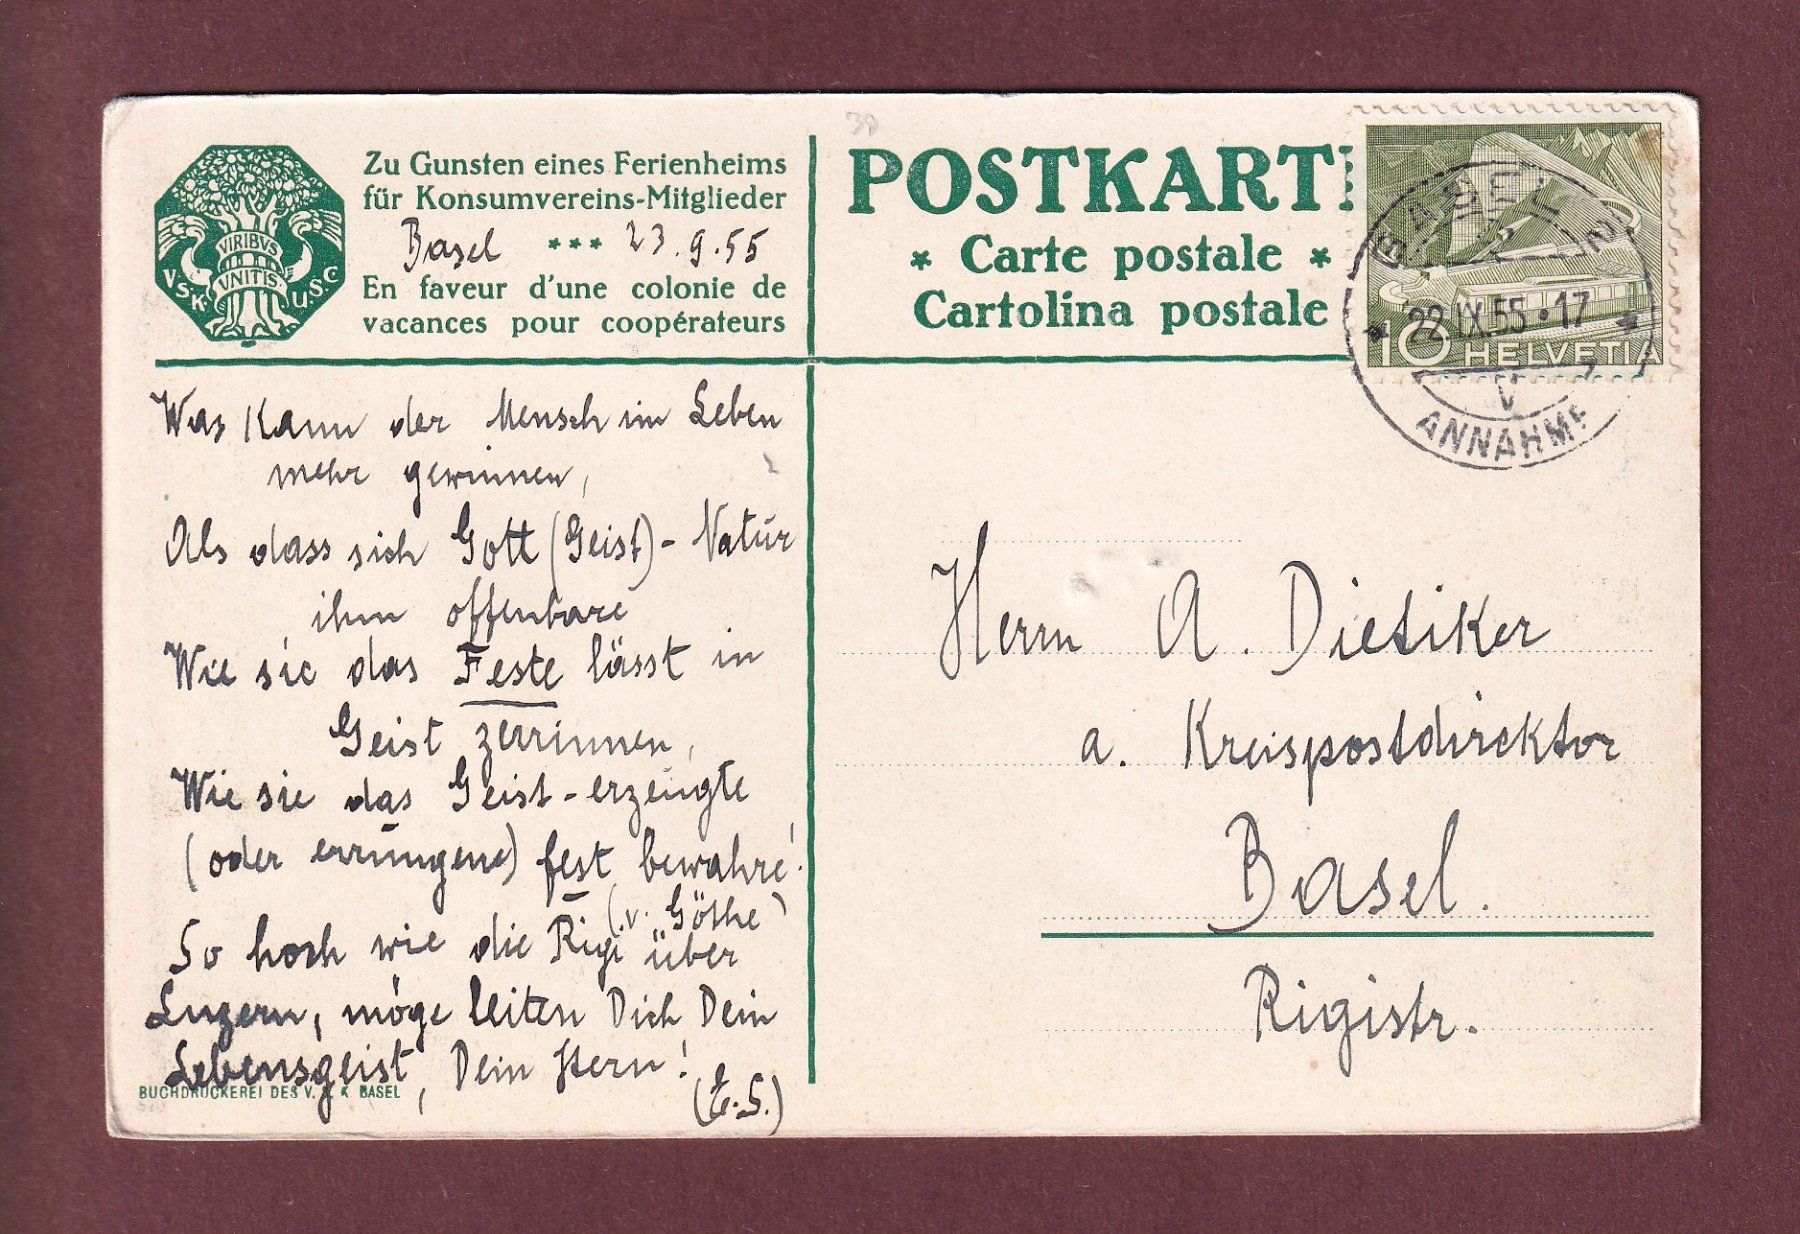 Zu Gunsten eines Ferienheims
für Konsumvereins-Mitglieder
Basel *** 23.9.55
En faveur d'une colonie de
vacances pour coopérateurs
VIRIBVS
VNITIS
V.S.K. U.S.C.
Was kann der Mensch im Leben
mehr gewinnen,
Als dass sich Gott (Geist)- Natur
ihm offenbare
Wie sie das Feste lässt in
Geist zerrinnen,
Wie sie das Geist-erzeugte
(oder errungene) fest bewahre!
(v. Göthe)
So hoch wie die Rigi über
Luzern, möge leiten Dich Dein
Lebensgeist, Dein Stern!
(E.S.)
BUCHDRUCKEREI DES V. S. K BASEL
30
POSTKART
* Carte postale *
Cartolina postale
BASEL 2
* 22.IX.55.17 *
10 HELVETIA
V
ANNAHME
Herrn A. Dietiker
a. Kreispostdirektor
Basel.
Rigistr.